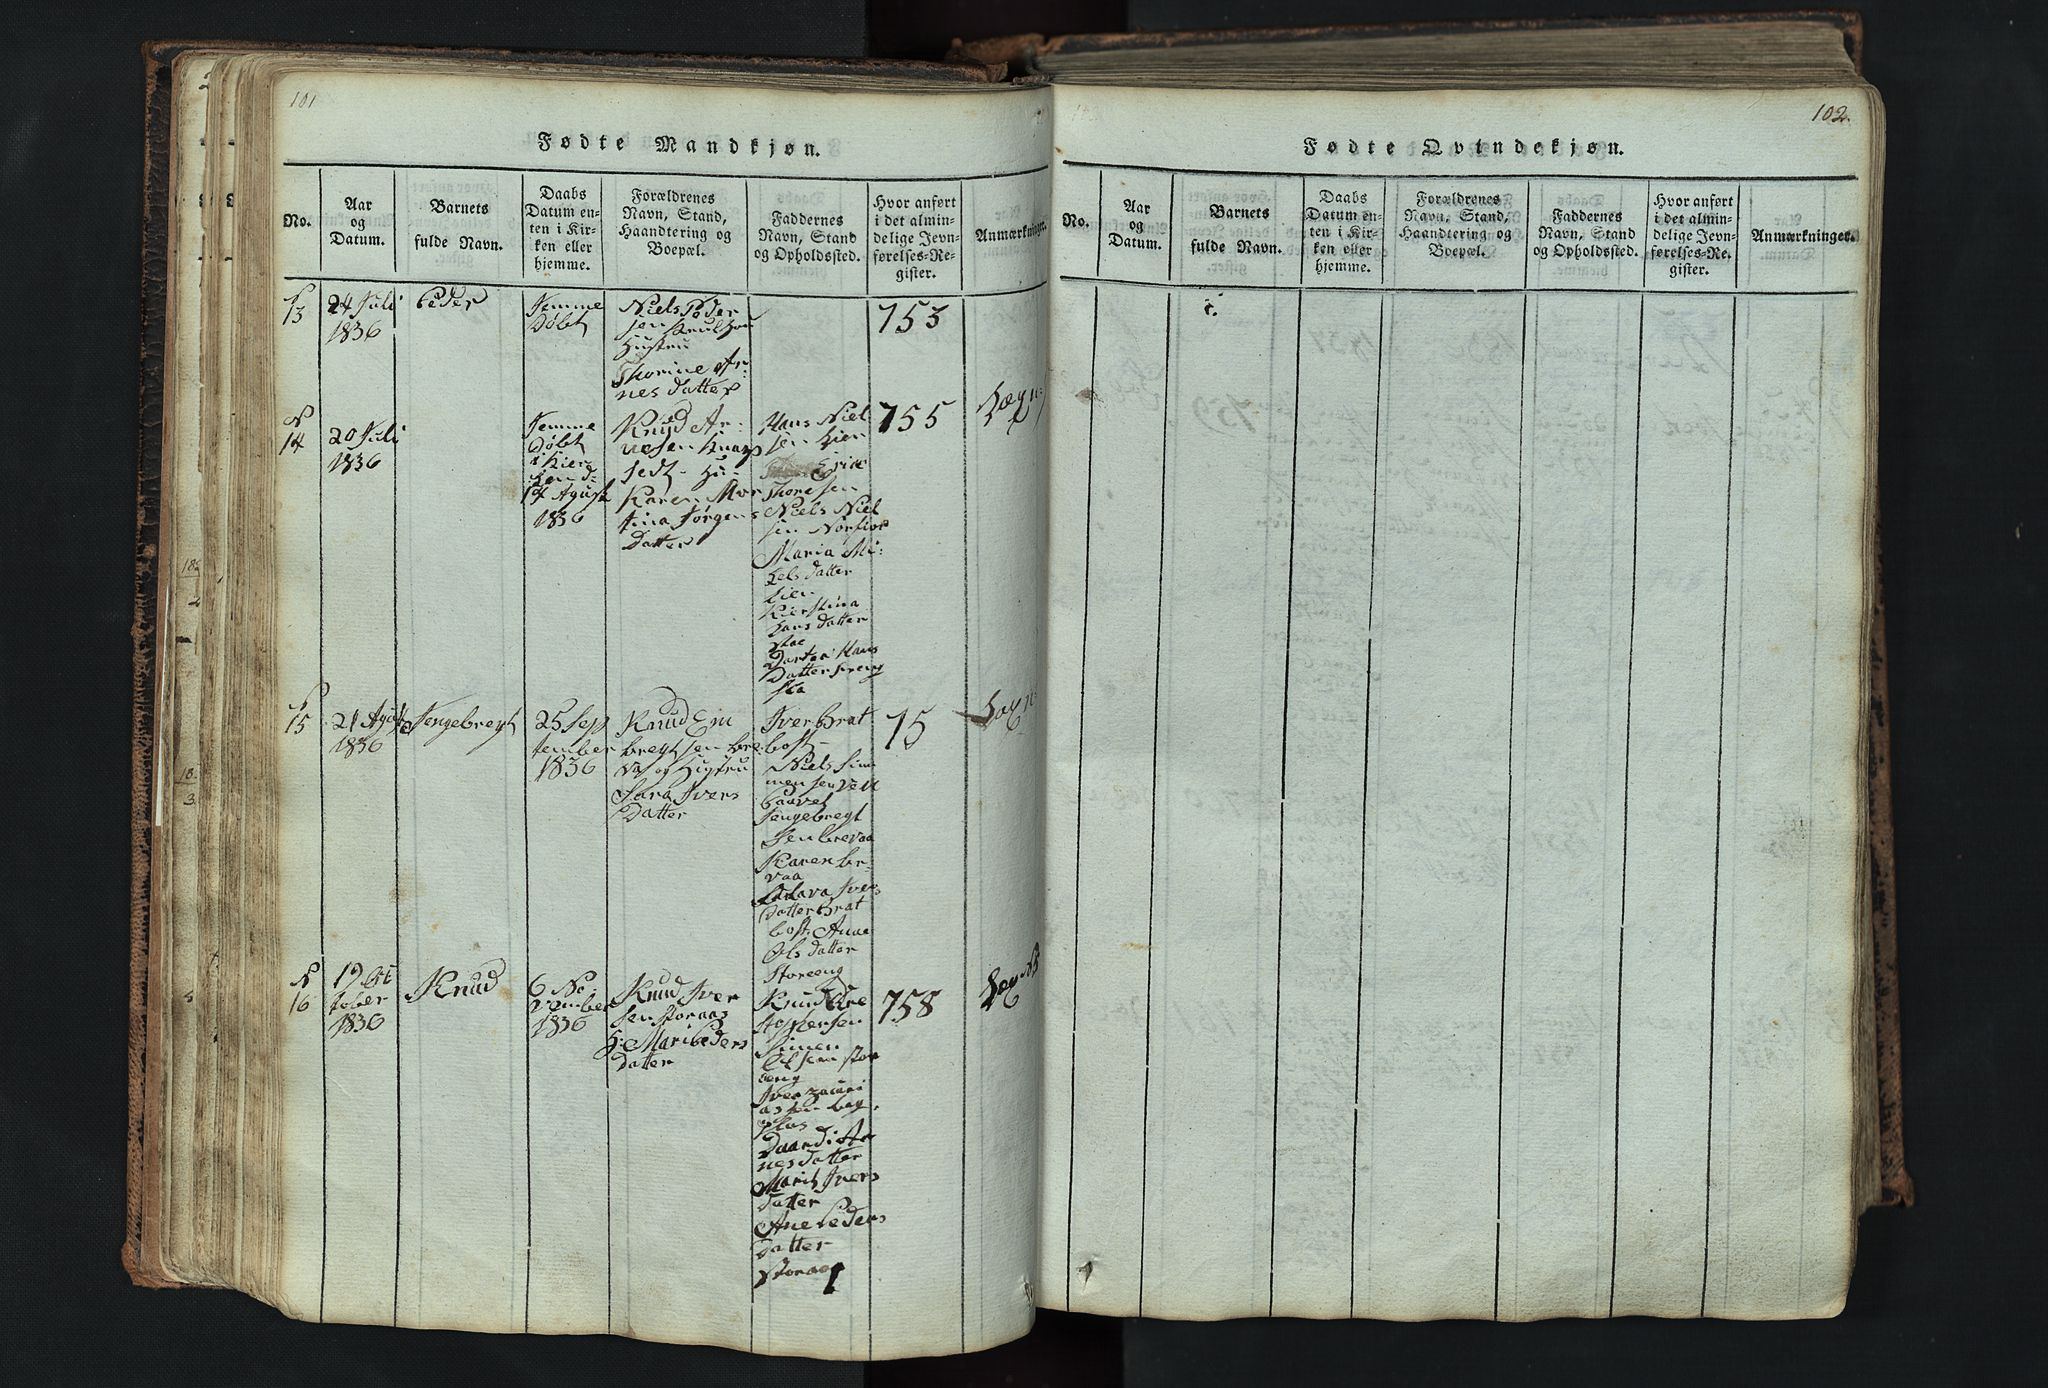 101
Fødte Mandkjøn.
No.
Aar
og
Datum.
Barnets
fulde Navn.
Daabs
Datum en-
ten i Kir-
ken eller
hjemme.
Forældrenes
Navn, Stand,
Haandtering og
Boepæl.
Faddernes
Navn, Stand
og Opholdssted.
Hvor anført
i det almin-
delige Jevn-
førelses-Re-
gister.
Anmærkninger.
13
24 Juli
1836
Peder
Jemme
Døbt
Niels Peder
sen
Hustru
Thorine Ar-
nes datter
753
N
14
20 Juli
1836
Jemme
Døbt
14 Agust
1836
Knud Ar-
nesen
Karen Mar
tina Jørgens
Datter
Hans Niel
sen Lien
Eric
Thoresen
Niels Niel
sen
Maria Mi-
kels datter
Lien
Kierstina
Hans datter
Dortea Hans
Datter
755
15
21 Agust
1836
Jengebregt
25 Sep
tember
1836
Knud Em
bregtsen Bre-
Hustru
Sara Ivers
Datter
Iver Brat
bost
Niels Sim
mensen
Paavel
Jengebregt
sen Brevaa
Karen Br-
vaa
Ivers
datter Brat
bost. Anne
Ols datter
Storeng
75
N
16
19 Oc
tober
1836
Knud
6 No-
vember
1836
Knud Iver
sen Storaas
H: Mari Peders
datter
Knud Are
Simen
Olsen Stor
eng
Iver Zacari
assen
Daardi Ar
nesdatter
Marit Ivers
datter
Ane Peders
datter
Storaas
758
102.
Fødte Qvindekjøn.
No.
Aar
og
Datum.
Barnets
fulde Navn.
Daabs
Datum en-
ten i Kir-
ken eller
hjemme.
Forældrenes
Navn, Stand,
Haandtering og
Boepæl.
Faddernes
Navn, Stand
og Opholdssted.
Hvor anført
i det almin-
delige Jevn-
førelses-Re-
gister.
Anmærkninger.